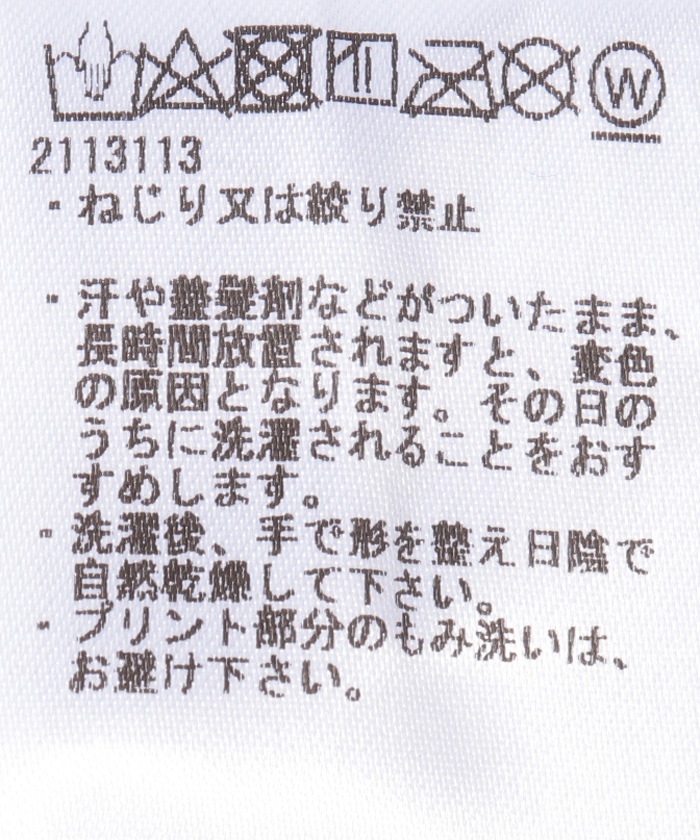 W
2113113
・ねじり又は絞り禁止
・汗や整髪剤などがついたまま、
長時間放置されますと、変色
の原因となります。その日の
うちに洗濯されることをおす
すめします。
・洗濯後、手で形を整え日陰で
自然乾燥して下さい。
・プリント部分のもみ洗いは、
お避け下さい。